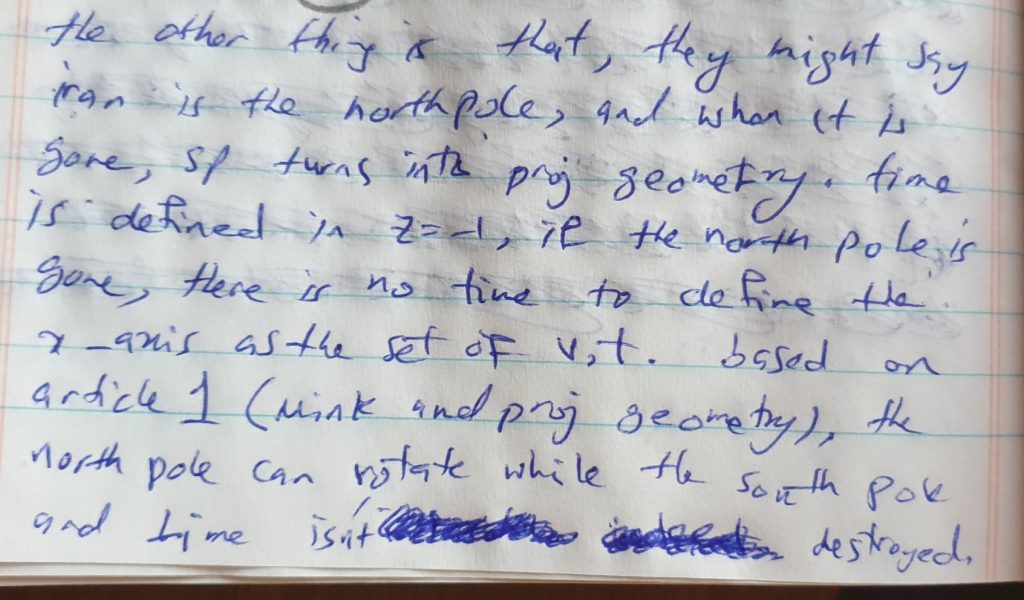 the other thing is that, they might say
iran is the northpole, and when it is
gone, sp turns into proj geometry. time
is defined in z=-1, if the north pole is
gone, there is no time to define the
x-axis as the set of v,t. based on
article 1 (Mink and proj geometry), the
north pole can rotate while the south pole
and time isn't destroyed.